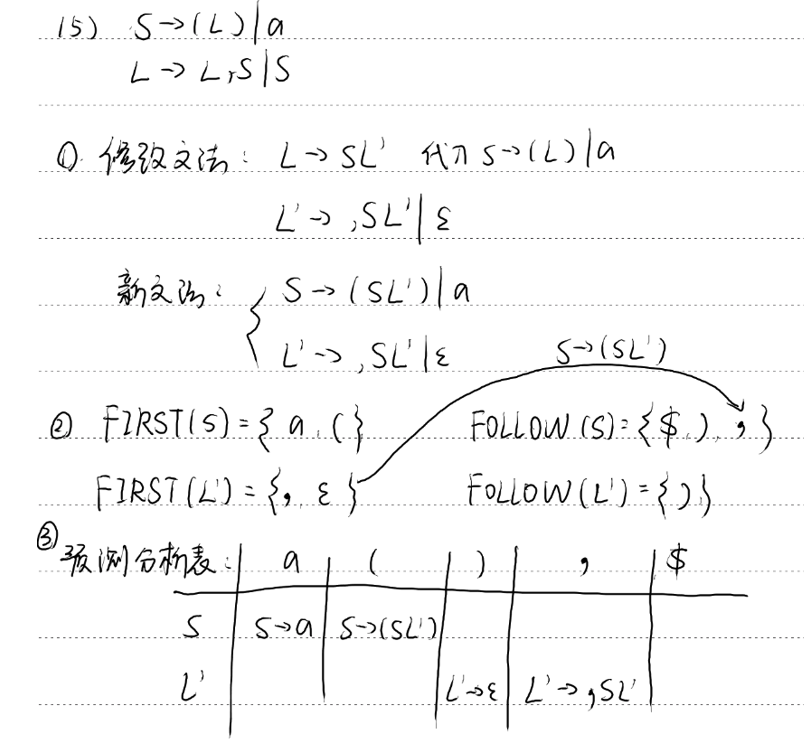 (5) S→(L)|a
L→L,S|S
① 修改文法: L→SL' 代入 S→(L)|a
L'→,SL'|ε
新文法: { S→(SL')|a
L'→,SL'|ε S→(SL')
② FIRST(S)={a,(} FOLLOW(S)={$,),,}
FIRST(L')={, ε} FOLLOW(L')={)}
③ 预测分析表: a ( ) , $
S S→a S→(SL')
L' L'→ε L'→,SL'